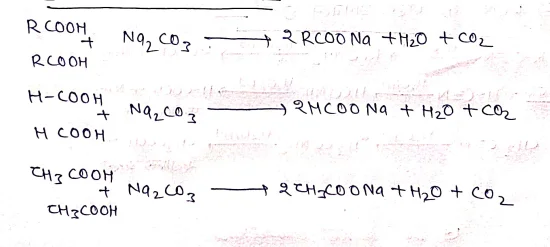 RCOOH + Na₂CO₃ ⟶ 2RCOONa + H₂O + CO₂
RCOOH
H-COOH + Na₂CO₃ ⟶ 2HCOONa + H₂O + CO₂
H COOH
CH₃COOH + Na₂CO₃ ⟶ 2CH₃COONa + H₂O + CO₂
CH₃COOH